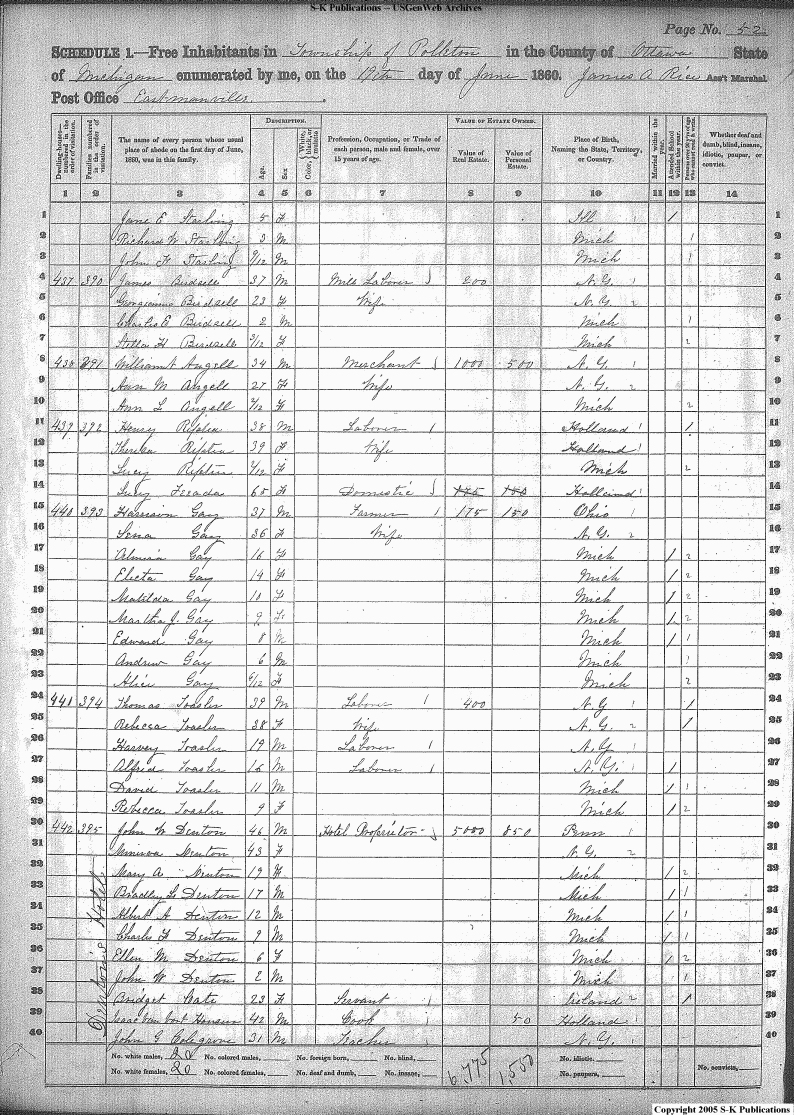 S-K Publications – USGenWeb Archives
Page No. 52
SCHEDULE 1.—Free Inhabitants in Township of Polkton in the County of Ottawa State
of Michigan enumerated by me, on the 19th day of June 1860. James A Rice Ass't Marshal
Post Office Eastmanville.
DESCRIPTION. VALUE OF ESTATE OWNED.
Dwelling-houses—numbered in the order of visitation. Families numbered in the order of visitation. The name of every person whose usual place of abode on the first day of June, 1860, was in this family. Age. Sex. Color, White, black, or mulatto Profession, Occupation, or Trade of each person, male and female, over 15 years of age. Value of Real Estate. Value of Personal Estate. Place of Birth, Naming the State, Territory, or Country. Married within the year. Attended School within the year. Whether deaf and dumb, blind, insane, idiotic, pauper, or convict.
1 2 3 4 5 6 7 8 9 10 11 12 13 14
1 Jane E Starling 5 F Ill 1 1
2 Richard W Starling 3 M Mich 2
3 John F Starling 9/12 M Mich 3
4 437 390 James Birdsell 37 M Mill Laborer 200 N.Y. 4
5 Georgianna Birdsell 23 F Wife N.Y. 5
6 Charles E Birdsell 2 M Mich 6
7 H Birdsell F Mich 7
8 438 391 William Angell 34 M Merchant 1000 500 N.Y. 8
9 Ann M Angell 27 F Wife N.Y. 9
10 Ann L Angell F Mich 10
11 439 392 Henry 38 M Laborer Holland 1 11
12 39 F Wife Holland 12
13 Lucy F Mich 13
14 Lucy 65 F Domestic Holland 14
15 440 393 Harrison Gay 37 M Farmer 175 150 Ohio 15
16 Lena Gay 36 F Wife N.Y. 16
17 Almira Gay 16 F Mich 1 2 17
18 Electa Gay 14 F Mich 1 2 18
19 Matilda Gay 10 F Mich 1 2 19
20 Martha J. Gay 9 F Mich 1 2 20
21 Edward Gay 8 M Mich 1 1 21
22 Andrew Gay 6 M Mich 22
23 Alice Gay F Mich 2 23
24 441 394 Thomas Toasler 39 M Laborer 400 N.Y 1 24
25 Rebecca Toasler 38 F Wife N.Y. 25
26 Harvey Toasler 19 M Laborer N.Y 26
27 Alfred Toasler 16 M Laborer N.Y. 1 27
28 David Toasler 11 M Mich 1 1 28
29 Rebecca Toasler 9 F Mich 1 2 29
30 442 395 John W Denton 46 M Hotel Proprietor 5000 850 Penn 30
31 Minerva Denton 43 F N.Y. 2 31
32 Mary A Denton 19 F Mich 1 2 32
33 Bradley L Denton 17 M Mich 1 1 33
34 Albert A Denton 12 M Mich 1 1 34
35 Charles F Denton 9 M Mich 1 1 35
36 Ellen M Denton 6 F Mich 1 2 36
37 John W Denton 2 M Mich 1 37
38 Bridget Cate 23 F Servant Ireland 38
39 Isaac Van 42 M Cook 50 Holland 39
40 John G Colegrove 31 M Teacher N.Y. 40
Denton's Hotel
No. white males, 20 No. colored males, No. foreign born, No. blind, 6,775 1,550 No. idiotic.
No. white females, 20 No. colored females, No. deaf and dumb, No. insane, No. paupers, No. convicts,
Copyright 2005 S-K Publications